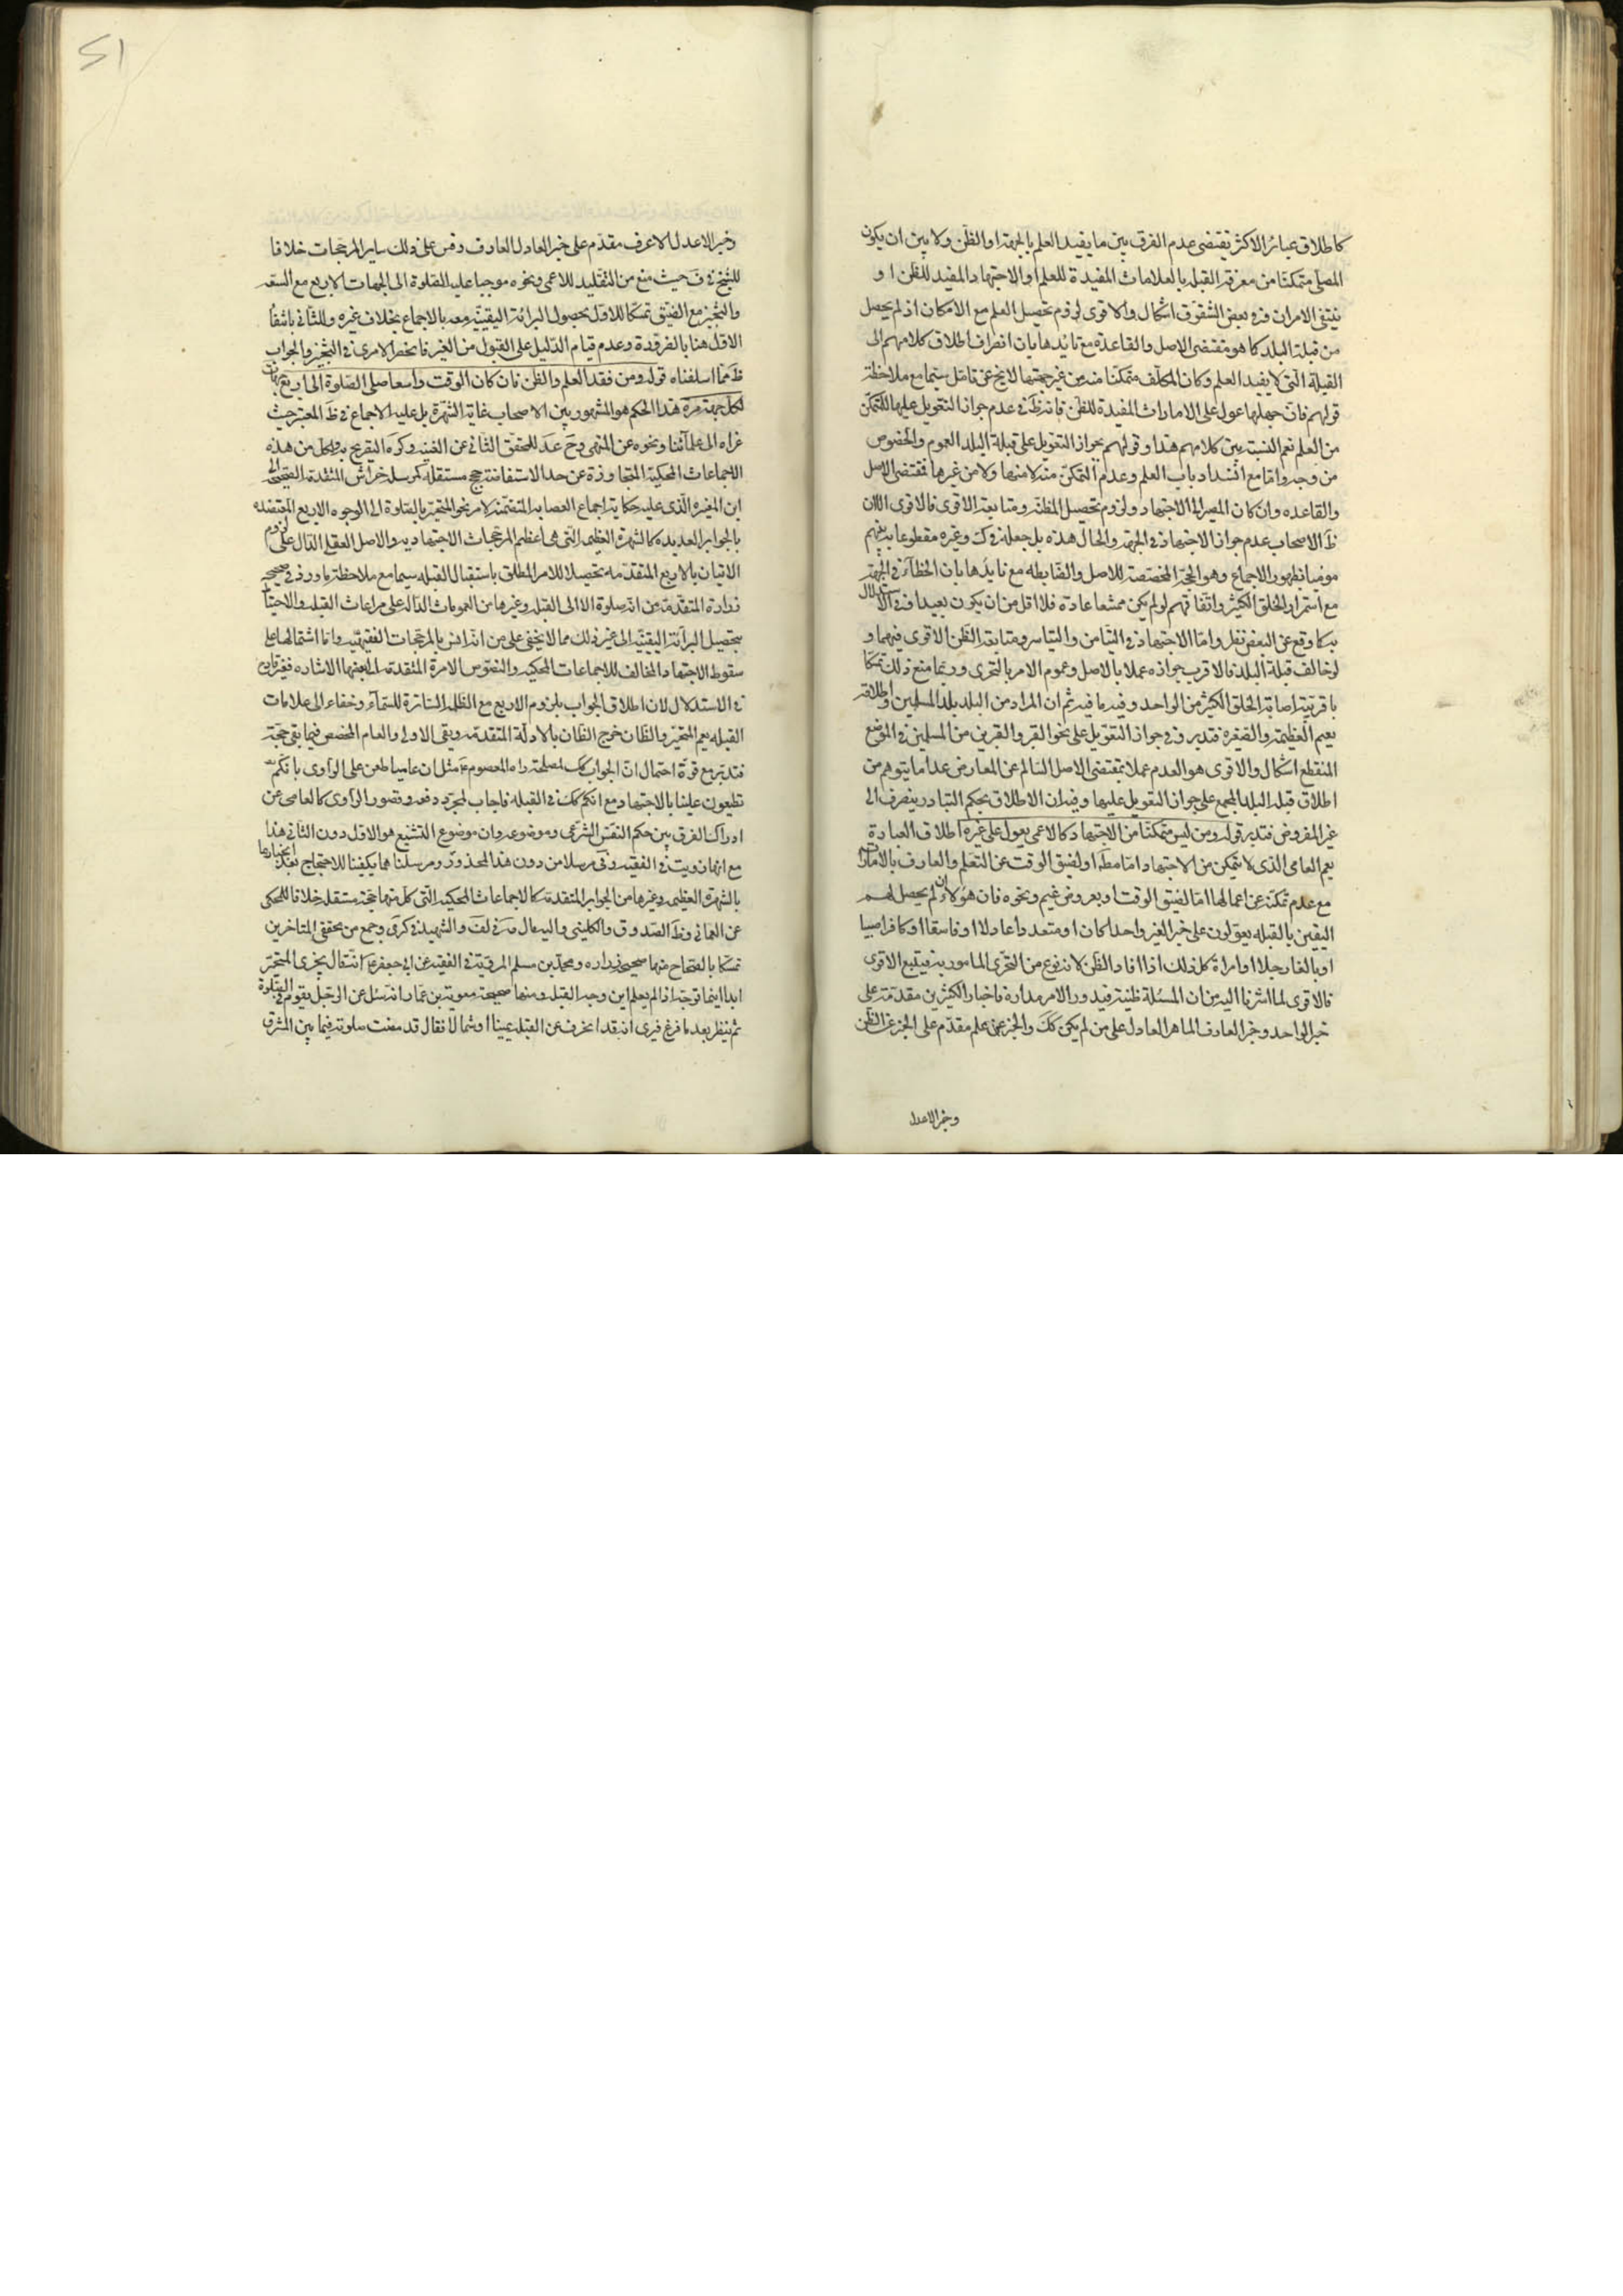 كاطلاق عبائر الاكثر يقتضى عدم الفرق بين ما يفيد العلم بالجهة او الظن ولا بين ان يكون
المصلى متمكنا من معرفة القبله بالعلامات المفيدة للعلم او الاجتهاد المفيد للظن او
ينتفى الامران وفى بعض الشقوق اشكال والاقوى لزوم تحصيل العلم مع الامكان اذ لم يحصل
من قبلة البلد كما هو مقتضى الاصل والقاعدة مع تائيدها بان انصراف اطلاق كلامهم الى
القبلة التى لا يفيد العلم وكان المكلف متمكنا منه من غير جهتها لا يخ عن تامل سيما مع ملاحظة
قولهم فان جهلها عول على الامارات المفيدة للظن فانه ظ فى عدم جواز التعويل عليها للمتمكن
من العلم نعم النسبة بين كلامهم هذا و قولهم بجواز التعويل على قبلة البلد العموم والخصوص
من وجه واما مع انسداد باب العلم وعدم التمكن منه لا منها ولا من غيرها فمقتضى الاصل
والقاعده وان كان المصير الى الاجتهاد ولزوم تحصيل المظنه ومتابعة الاقوى فالاقوى الا ان
ظ الاصحاب عدم جواز الاجتهاد فى الجهة والحال هذه بل جعله فى ك وغيره مقطوعا به بينهم
موميا بظهور الاجماع وهو الحجة المخصصة للاصل والضابطه مع تايدها بان الخطاء فى الجهة
مع استمرار الخلق الكثير واتفاقهم لو لم يكن ممتنعا عادة فلا اقل من ان يكون بعيدا وفى الاستدلال
به كا وقع عن البعض نظر واما الاجتهاد فى التيامن والتياسر ومتابعة الظن الاقوى فيهما و
لو خالف قبلة البلد فالاقرب جوازه عملا بالاصل وعموم الامر بالتحرى وربما منع ذلك تمسكا
باقربية اصابة الخلق الكثير من الواحد وفيه ما فيه ثم ان المراد من البلد بلد المسلمين واطلاقه
يعم العظيمة والصغيره فتدبر وفى جواز التعويل على نحو القبر والقبرين من المسلمين فى الموضع
المنقطع اشكال والاقوى هو العدم عملا بمقتضى الاصل السالم عن المعارض عدا ما يتوهم من
اطلاق قبلة البلد المجمع على جواز التعويل عليها وفيه ان الاطلاق بحكم التبادر ينصرف الى
غير المفروض فتدبر قوله ومن ليس متمكنا من الاجتهاد كالاعمى يعول على غيره اطلاق العبادة
يعم العامى الذى لا يتمكن من الاجتهاد اما مط او لضيق الوقت عن التعلم والعارف بالامارات
مع عدم تمكنه عن اعمالها اما لضيق الوقت او بعروض غيم ونحوه فان هؤلاء ان لم يحصل لهم
اليقين بالقبله يعولون على خبر الغير واحدا كان او متعددا عادلا او فاسقا او كافرا صبيا
او بالغا رجلا او امراة كل ذلك اذا افاد الظن لانه نوع من التحرى المامور به فيتبع الاقوى
فالاقوى لما اشرنا اليه من ان المسئلة ظنية فيدور الامر مداره فاخبار الكثيرين مقدمة على
خبر الواحد وخبر العارف الماهر العادل على من لم يكن كك والخبر عن علم مقدم على الخبر عن الظن
وخبر الاعدل
51
وخبر الاعدل الاعرف مقدم على خبر العادل العارف وقس على ذلك ساير المرجحات خلافا
للشيخ فى ف حيث منع من التقليد للاعمى ونحوه موجبا عليه الصلوة الى الجهات الاربع مع السعه
والتخيير مع الضيق تمسكا للاول بحصول البرائة اليقينية معه بالاجماع بخلاف غيره وللثانى بانتفاء
الاول هنا بالضرورة وعدم قيام الدليل على القبول من الغير فانحصر الامر فى التخيير والجواب
ظ مما اسلفناه قوله ومن فقد العلم والظن فان كان الوقت واسعا صلى الصلوة الى اربع جهات
لكل جهة مرة هذا الحكم هو المشهور بين الاصحاب غاية الشهرة بل عليه الاجماع فى ظ المعتبر حيث
عزاه الى علمائنا ونحوه عن المنتهى وصرح عد للمحقق الثانى عن الغنيه وكره التصريح به وكل من هذه
الاجماعات المحكية المتجاوزة عن حد الاستفاضة حجج مستقله كمرسلة خراش المتقدمة الصحيحة الى
ابن المغيره الذى عليه حكاية اجماع العصابه المتضمنة لامر نحو المتحير بالصلوة الى الوجوه الاربع المعتضده
بالجوابر العديده كالشهرة العظيمة التى هى اعظم المرجحات الاجتهاديه والاصل العقلى الدال على لزوم
الاتيان بالاربع المتقدمه تحصيلا للامر المطلق باستقبال القبله سيما مع ملاحظة ما ورد فى صحيحه
زرارة المتقدمة من انه لا صلوة الا الى القبلة وغيرها من العمومات الداله على مراعات القبله والاحتياط
بتحصيل البرائة اليقينية الى غير ذلك مما لا يخفى على من انس بالمرجحات الفقيهية واما اشتمالها على
سقوط الاجتهاد المخالف للاجماعات المحكيه والنصوص الامرة المتقدمة الى بعضها الاشاره فغير قادح
فى الاستدلال لان اطلاق الجواب بلزوم الاربع مع الظلمة الساترة للسماء وخفاء الى علامات
القبله يعم المتحير والظان خرج الظان بالادلة المتقدمة وبقى الاول والعام المخصص فيما بقى حجة
فتدبر مع قوة احتمال ان الجواب كك لمصلحة راه المعصوم ع مثل ان عاميا طعن على الراوى بانكم
تطعون علينا بالاجتهاد مع انكم كك فى القبله فاجاب لمجرد دفعه وقصور الراوى كالعامى عن
ادراك الفرق بين حكم النفس الشرعى وموضوعه وان موضوع التشنيع هو الاول دون الثانى هذا
مع انها رويت فى الفقيه وفى مرسلا من دون هذا المحذور ومرسلنا هما يكفينا للاحتجاج بعد انجبارها
بالشهرة العظيمه وغيرها من الجوابر المتقدمة كالاجماعات المحكيه التى كل منها حجة مستقله خلافا للمحكى
عن العمانى وظ الصدوق والكلينى واليه مال مة فى لف والشهيد فى كرى وجمع من محققى المتاخرين
تمسكا بالصحاح منها صحيحى زراره ومحمد بن مسلم المروية فى الفقيه عن ابى جعفر ع انه قال يجزى المتحير
ابدا اينما توجه اذا لم يعلم اين وجه القبله ومنها صحيحة معوية بن عمار انه سئل عن الرجل يقوم فى الصلوة
ثم ينظر بعد ما فرغ فيرى انه قد انحرف عن القبله يمينا او شمالا فقال قد مضت صلوته فيما بين المشرق